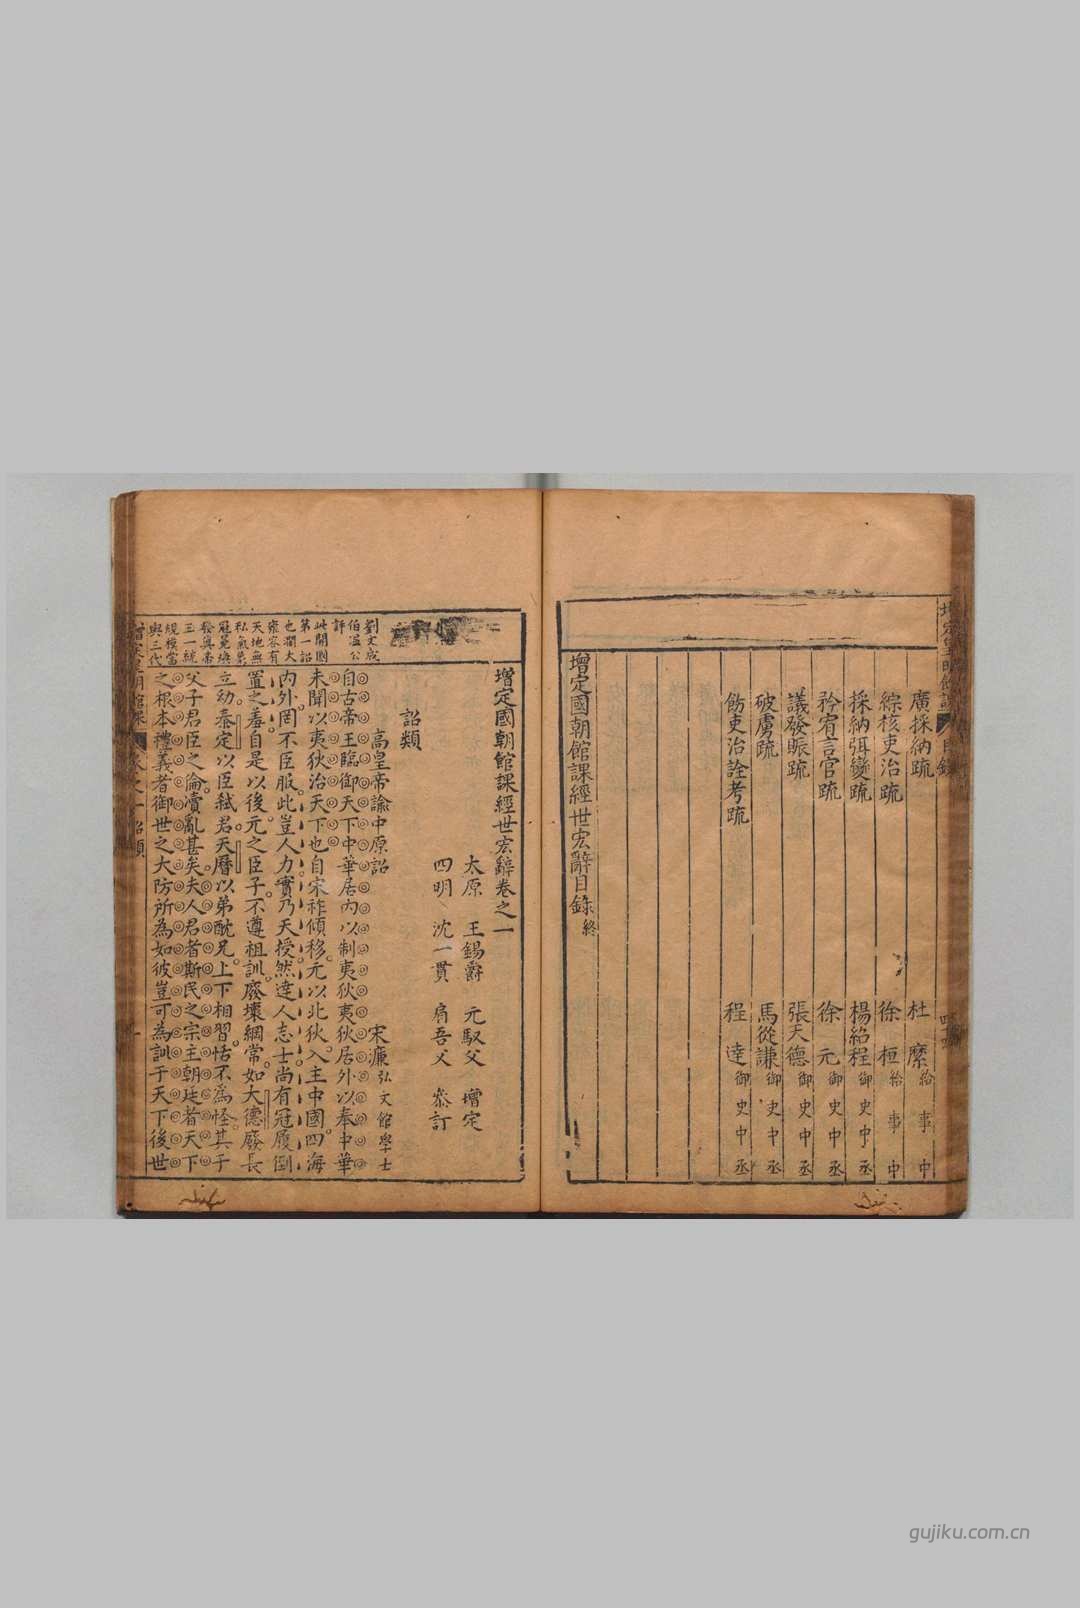 廣採納疏 杜糜給事中
綜核吏治疏 徐桓給事中
採納弭變疏 楊紹程御史中丞
矜宥言官疏 徐元御史中丞
議發賑疏 張天德御史中丞
破虜疏 馬從謙御史中丞
飭吏治詮考疏 程達御史中丞
增定國朝館課經世宏辭目錄終
增定國朝館課經世宏辭卷之一
太原 王錫爵 元馭父 增定
四明 沈一貫 肩吾父 叅訂
詔類
高皇帝諭中原詔 宋濂弘文館學士
劉文成
伯溫公
評
此開國
第一詔
也濶大
雍容有
天地無
私氣象
冠冕燠
發真帝
王一統
規模當
與三代
自古帝王臨御天下中華居內以制夷狄夷狄居外以奉中華
未聞以夷狄治天下也自宋祚傾移元以北狄入主中國四海
內外罔不臣服此豈人力實乃天授然達人志士尚有冠履倒
置之羞自是以後元之臣子不遵祖訓廢壞綱常如大德廢長
立幼泰定以臣弒君天曆以弟酖兄上下相習恬不為怪其于
父子君臣之倫瀆亂甚矣夫人君者斯民之宗主朝廷者天下
之根本禮義者御世之大防所為如彼豈可為訓于天下後世
gujiku.com.cn